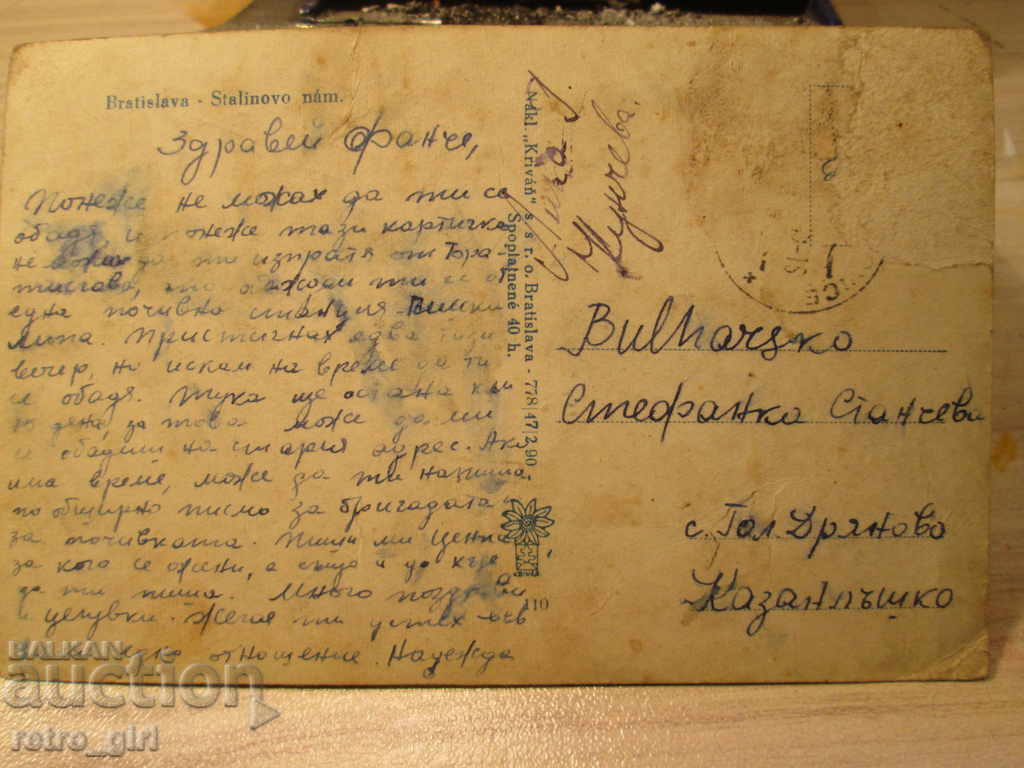 Bratislava - Stalinovo nám.
Здравей Фанче,
Понеже не можах да ти се
обадя и понеже тази картичка
не можах да ти изпратя от Бра
тислава, то обаждам ти се от
една почивна станция
липа. Пристигнах едва тази
вечер, но искам на време да ти
се обадя. Тука ще остана към
10 дена, за това може да ми
се обадиш на стария адрес. Ако
има време, може да ти напиша
по обширно писмо за бригадата и
за почивката. Пиши ми Ценка
за кого се жени, а също и до къде
да ти пиша. Много поздрави
и целувки. Желая ти успех във
отношение. Надежда
Nákl. „Kriváň" s. s r. o. Bratislava - 778/47/2.90
Spoplatnené 40 h.
110
Мунчева.
Bulharsko
Стефанка Станчева
с. Гол. Дряново
Казанлъшко
BALKAN
auction
retro_girl